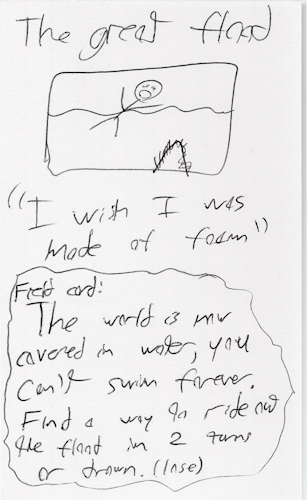 The great flood
"I wish I was
made of foam"
Field card:
The world is now
covered in water, you
can't swim forever.
Find a way to ride out
the flood in 2 turns
or drown. (lose)